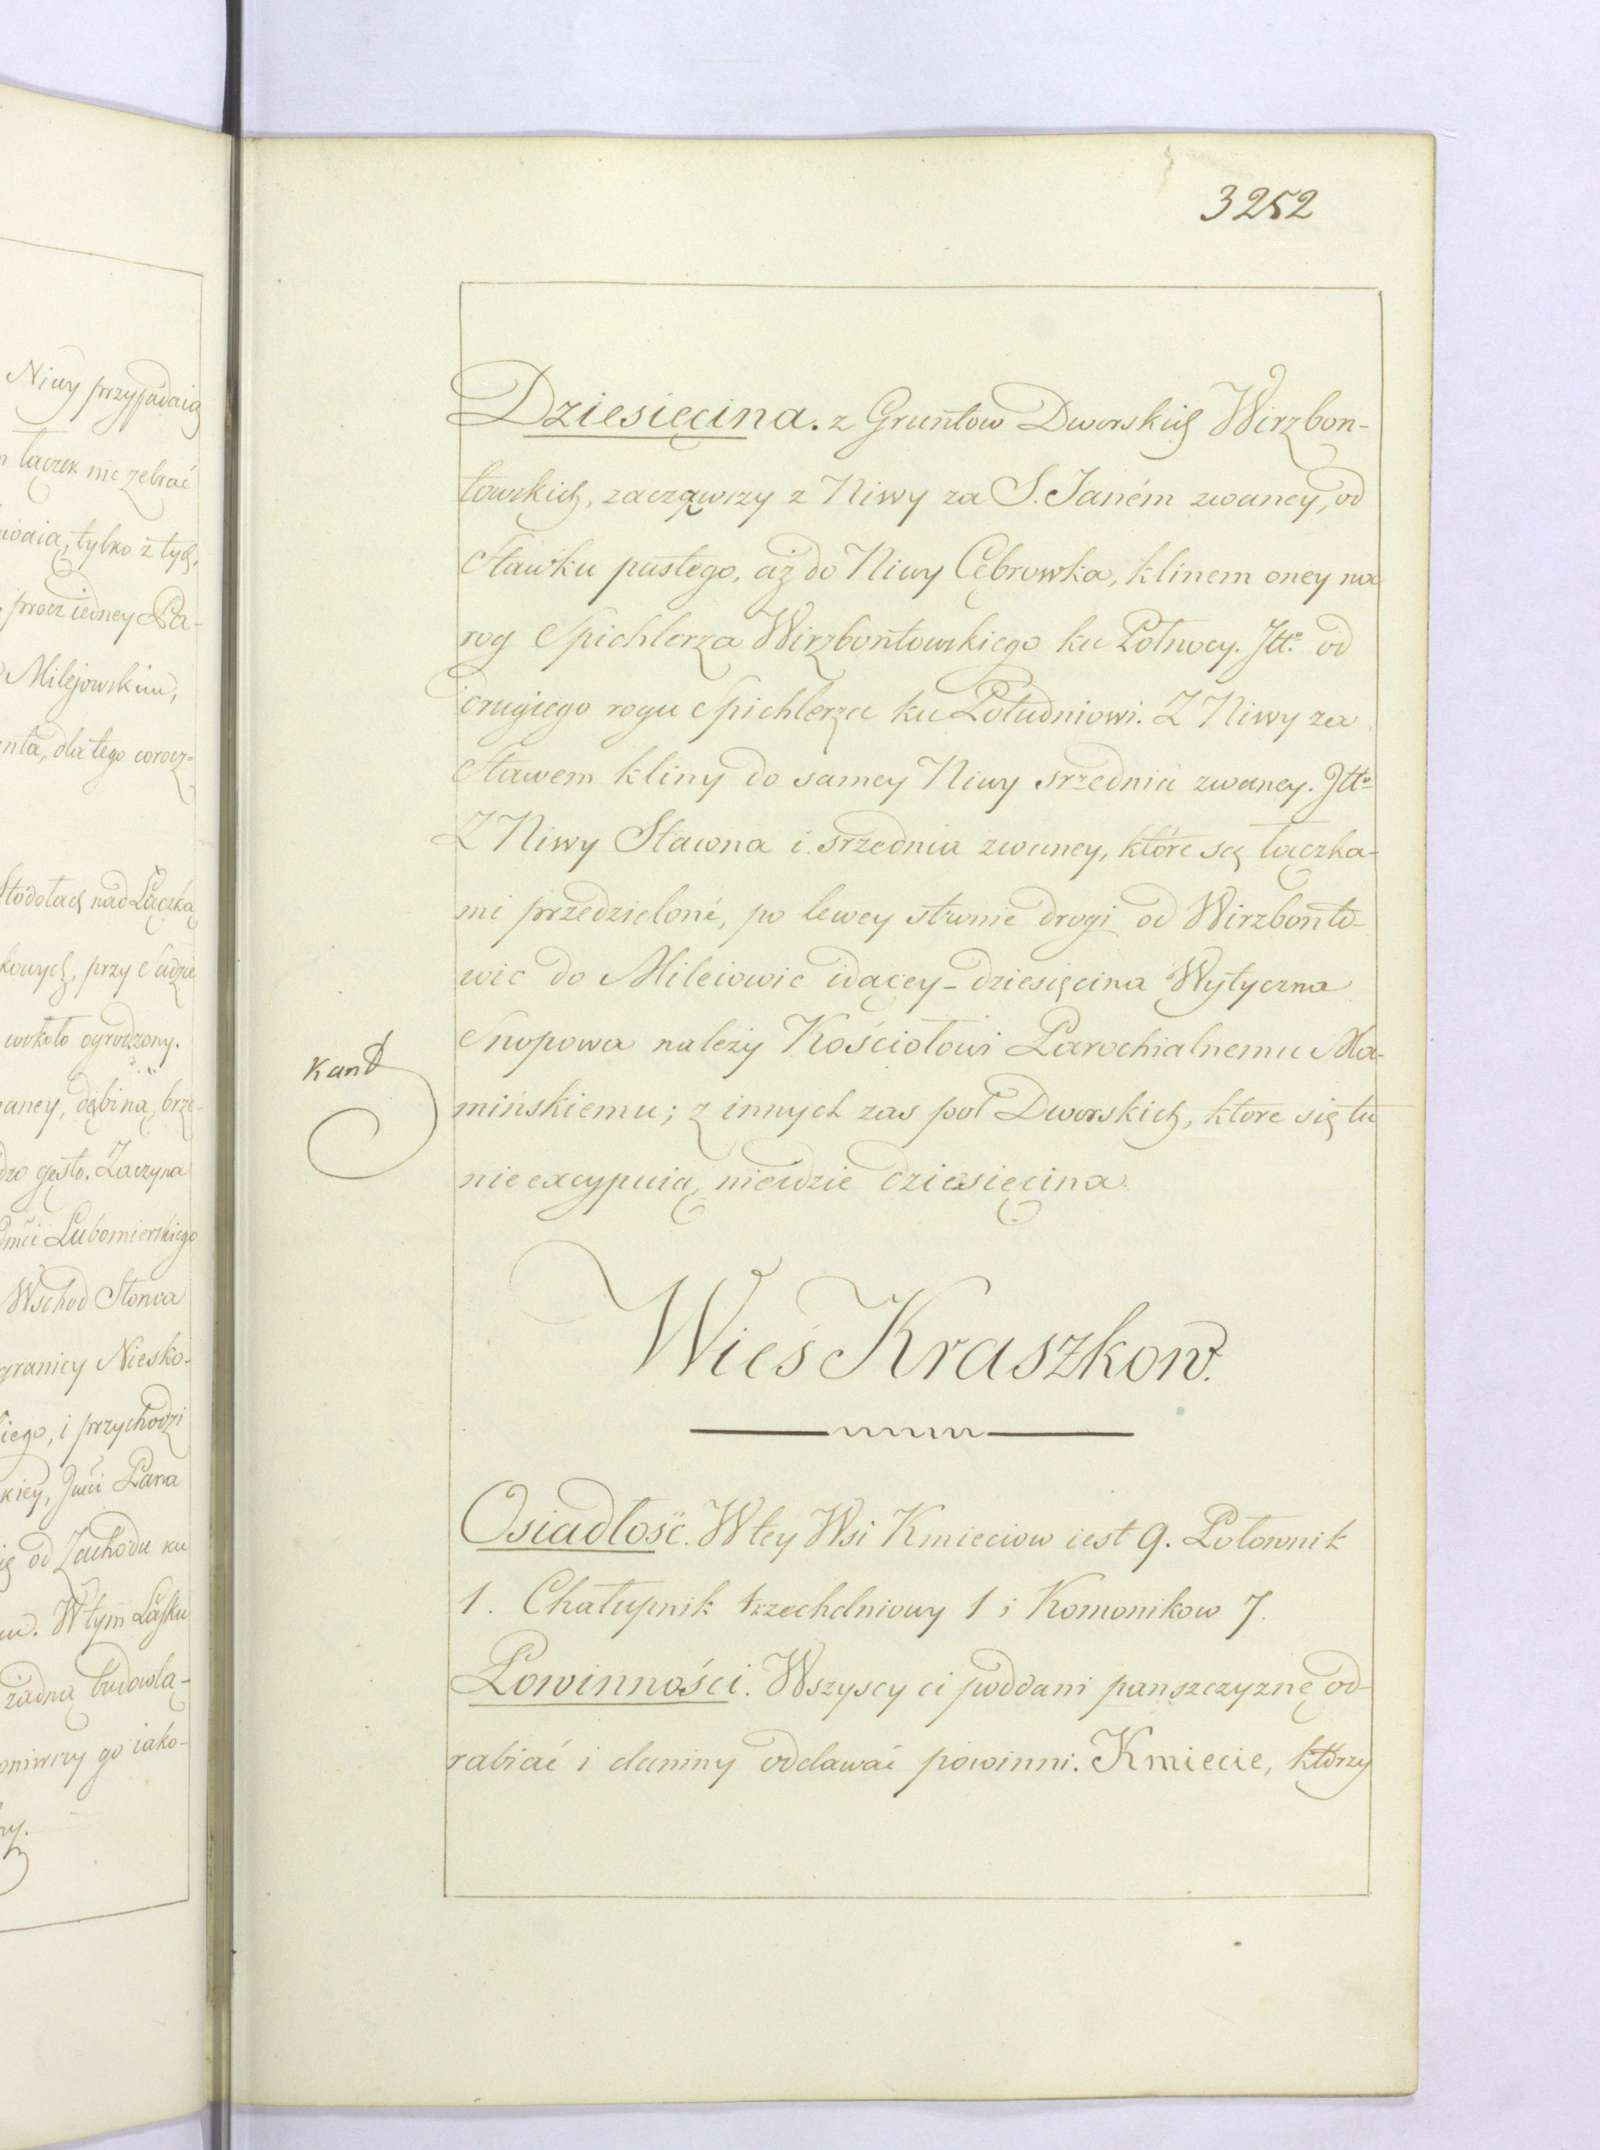 Niwy przypadaią
łączek nie zebrać
tylko z tych,
procz iedney Pa-
Milejowskim,
dla tego corocz-
Stodołach nad Łączką
przy Sadzie
wokoło ogrodzony.
dębiną, brze-
gęsto. Zaczyna
Lubomierskiego
Wschod Słońca
granicy Niesko-
i przychodzi
Jmci Pana
od Zachodu ku
W tym Lasku
żadną budowlą-
go iako-
3252
Dziesięcina. z Gruntow Dworskich Wirzbon-
towskich, zacząwszy z Niwy za S. Janém zwaney, od
Stawku pustego, aż do Niwy Cębrowka, klinem oney na
rog Spichlerza Wirzbontowskiego ku Połnocy. Itto od
drugiego rogu Spichlerza ku Południowi. Z Niwy za
Stawem kliny do samey Niwy srzednia zwaney. Itto
Z Niwy Stawna i srzednia zwaney, które są łączka-
mi przedzieloné, po lewey stronie drogi od Wirzbonto-
wic do Mileiowic idącey - dziesięcina Wytyczna
Snopowa należy Kościołowi Parochialnemu Mo-
Kand
mińskiemu; z innych zas pol Dworskich, ktore się tu
nie excypuią, nieidzie dziesięcina.
Wieś Kraszkow.
Osiadłość. W tey Wsi Kmieciow iest 9. Połownik
1. Chałupnik trzechdniowy 1 i Komonikow 7.
Powinności. Wszyscy ci poddani panszczyznę od-
rabiać i daniny oddawać powinni. Kmiecie, którzy